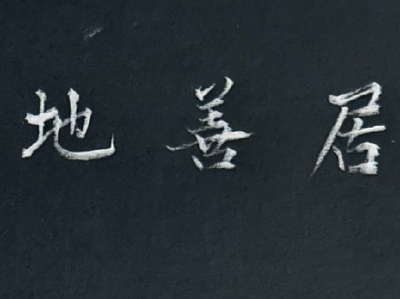 居善地